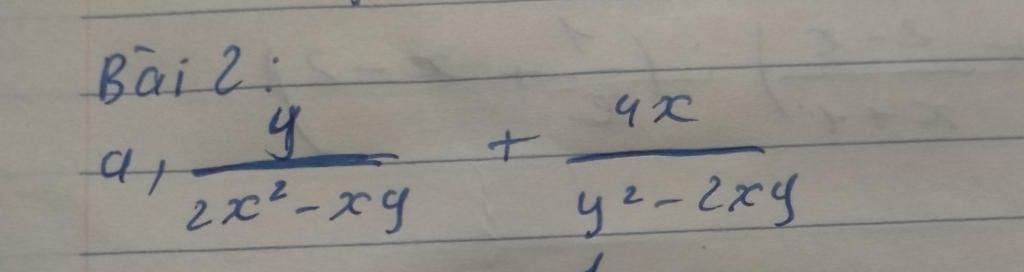 Bài 2:
a, y/(2x² - xy) + 4x/(y² - 2xy)